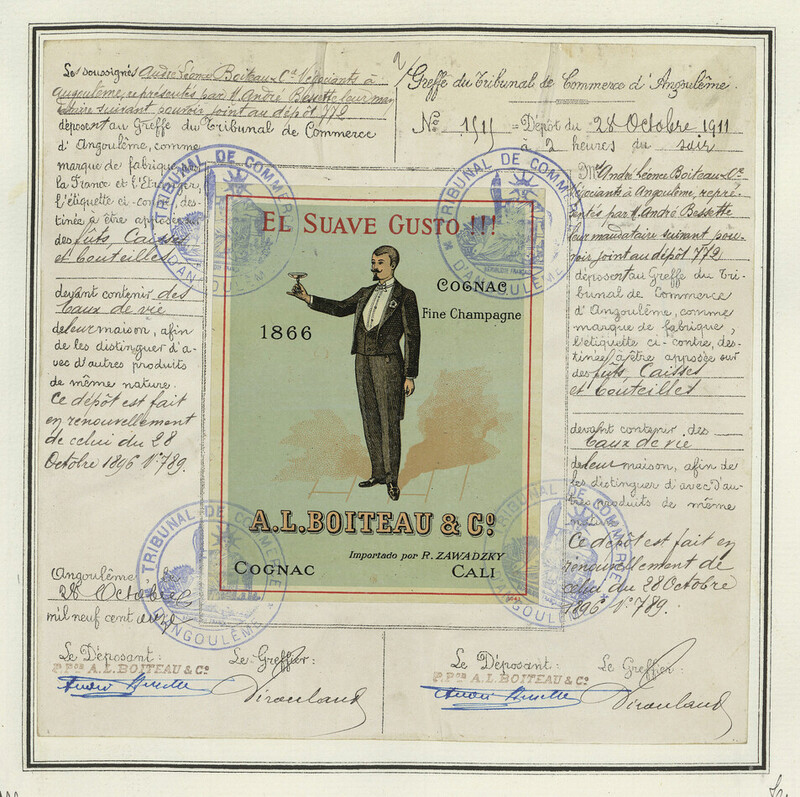 Les soussignés André Léonce Boiteau & Cie Négociants à
Angoulême, représentés par M. André Bessette leur man
dataire suivant pouvoir joint au dépôt 772
déposent au Greffe du Tribunal de Commerce
d'Angoulême, comme
marque de fabrique
la France et l'Etranger,
l'étiquette ci-contre, des-
tinée à être apposée sur
des fûts Caisses
et bouteilles
devant contenir des
Eaux de vie
de leur maison, afin
de les distinguer d'a-
vec d'autres produits
de même nature.
Ce dépôt est fait
en renouvellement
de celui du 28
Octobre 1896 N° 789.
Angoulême, le
28 Octobre
mil neuf cent onze
Le Déposant:
P. PON A. L. BOITEAU & Co
André Bessette
Le Greffier:
EL SUAVE GUSTO !!!
COGNAC
Fine Champagne
1866
A.L.BOITEAU & Co
Importado por R. ZAWADZKY
COGNAC
CALI
TRIBUNAL DE COMMERCE
D'ANGOULÊME
TRIBUNAL DE COMMERCE
D'ANGOULÊME
TRIBUNAL DE COMMERCE
D'ANGOULÊME
TRIBUNAL DE COMMERCE
D'ANGOULÊME
Greffe du Tribunal de Commerce d'Angoulême.
No 1511 = Dépôt du 28 Octobre 1911
à 2 heures du soir
Mrs André Léonce Boiteau & Cie
Négociants à Angoulême, repré-
sentés par M. André Bessette
leur mandataire suivant pou-
voir joint au dépôt 772
déposent au Greffe du Tri-
bunal de Commerce
d'Angoulême, comme
marque de fabrique,
l'étiquette ci-contre, des-
tinée à être apposée sur
des fûts Caisses
et bouteilles
devant contenir, des
Eaux de vie
de leur maison, afin de
les distinguer d'avec d'au-
tres produits de même
nature.
Ce dépôt est fait en
renouvellement de
celui du 28 Octobre
1896 N° 789.
Le Déposant:
P. PON A. L. BOITEAU & Co
André Bessette
Le Greffier: